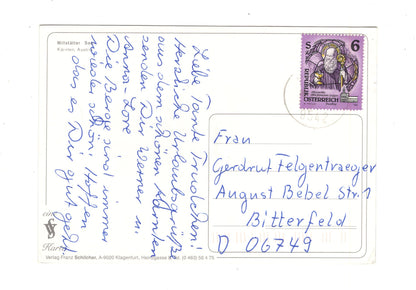 Millstätter See
Kärnten, Austria
Liebe Tante Trudchen!
Herzliche Urlaubsgrüße
aus dem schönen Kärnten
senden Dir Werner u.
Anna-Lore
Die Berge sind immer
wieder schön! Hoffen
das es Dir gut geht
S 6
REPUBLIK
ÖSTERREICH
Frau
Gerdrut Felgentraeger
August Bebel Str. 1
Bitterfeld
D 06749
eine
Karte
Verlag Franz Schilcher, A-9020 Klagenfurt,